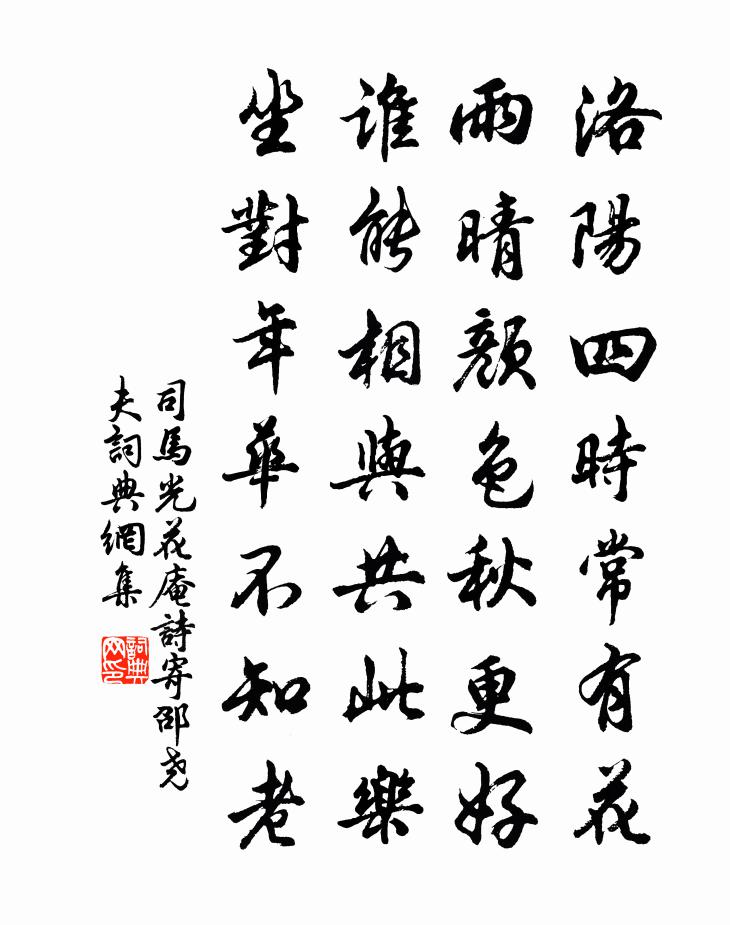 洛陽四時常有花
雨晴顏色秋更好
誰能相與共此樂
坐對年華不知老
司馬光花庵詩寄邵尧
夫詞典網集
詞典网印